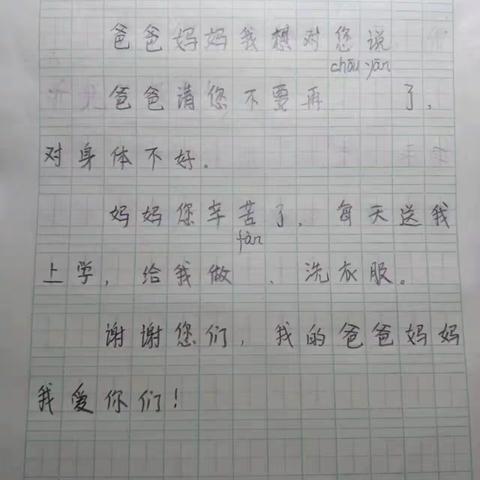 爸爸妈妈我想对您说
chōu yān
爸爸请您不要再 了,
对身体不好.
妈妈您辛苦了, 每天送我
fàn
上学, 给我做 、洗衣服。
谢谢您们, 我的爸爸妈妈
我爱你们!